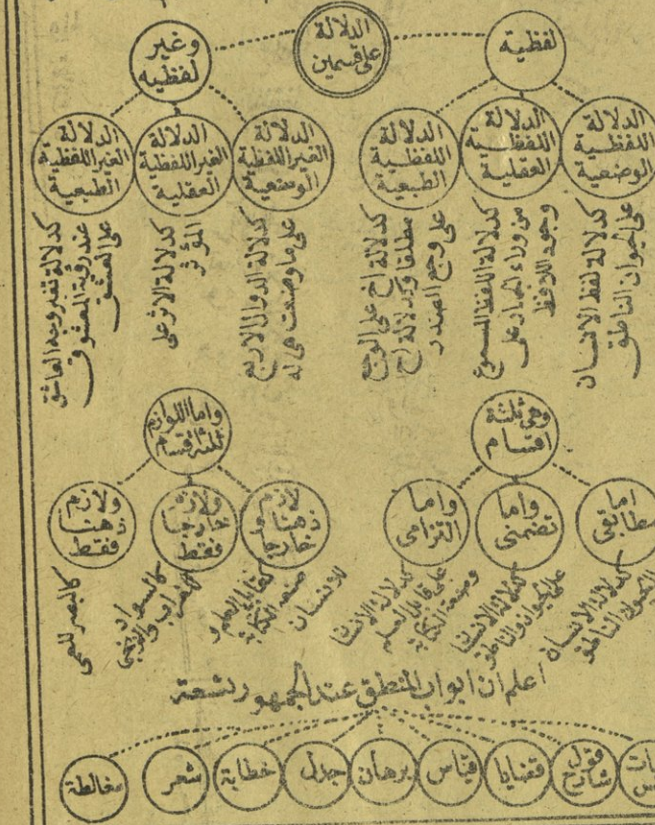 الدلالة
على قسمين
لفظية
وغير
لفظيه
الدلالة
اللفظية
الوضعية
الدلالة
اللفظية
العقلية
الدلالة
اللفظية
الطبعية
الدلالة
الغير اللفظية
الوضعية
الدلالة
الغير اللفظية
العقلية
الدلالة
الغير اللفظية
الطبعية
كدلالة لفظ الانسان
على الحيوان الناطق
كدلالة اللفظ المسموع
من وراء الجدار على
وجود اللافظ
كدلالة اخ على الوجع
مطلقا وكدلالة اح
على وجع الصدر
كدلالة الدوال الاربع
على ما وضعت هى له
كدلالة الاثر على
المؤثر
كدلالة تغير وجه العاشق
عند رؤية المعشوق
على العشق
وهي ثلثة
اقسام
واما اللوازم
ثلثة اقسام
اما
مطابقى
واما
تضمنى
واما
التزامى
لازم
ذهنا و
خارجا
ولازم
خارجا
فقط
ولازم
ذهنا
فقط
كدلالة الانسان
الحيوان الناطق
كدلالة الانسان
على الحيوان والناطق
كدلالة الانسان
على قابل العلم
وصنعة الكتابة
كقابل العلم و
صنعة الكتابة
للانسان
كالسواد
للغراب
كالبصر للعمى
اعلم ان ابواب المنطق عند الجمهور تسعة
قول
شارح
قضايا
قياس
برهان
جدل
خطابة
شعر
مغالطة